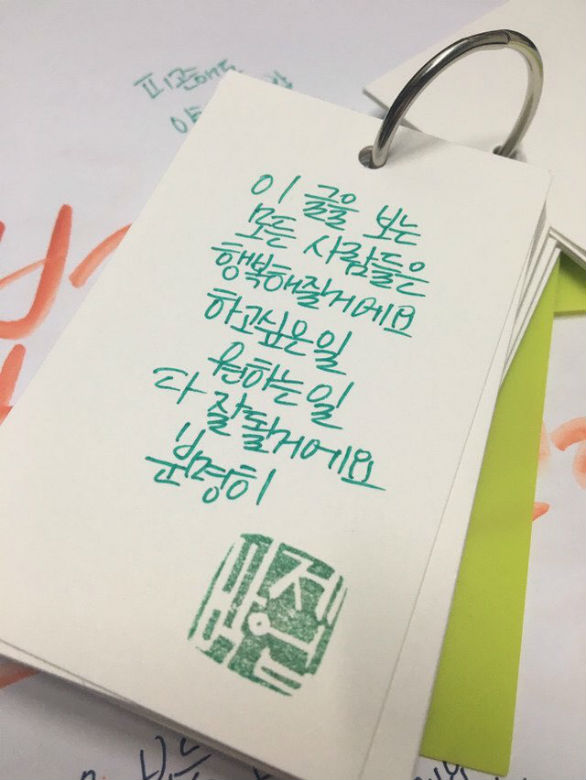 피곤해도
이 글을 보는
모든 사람들은
행복해질거에요
하고싶은일
원하는일
다 잘될거에요
분명히